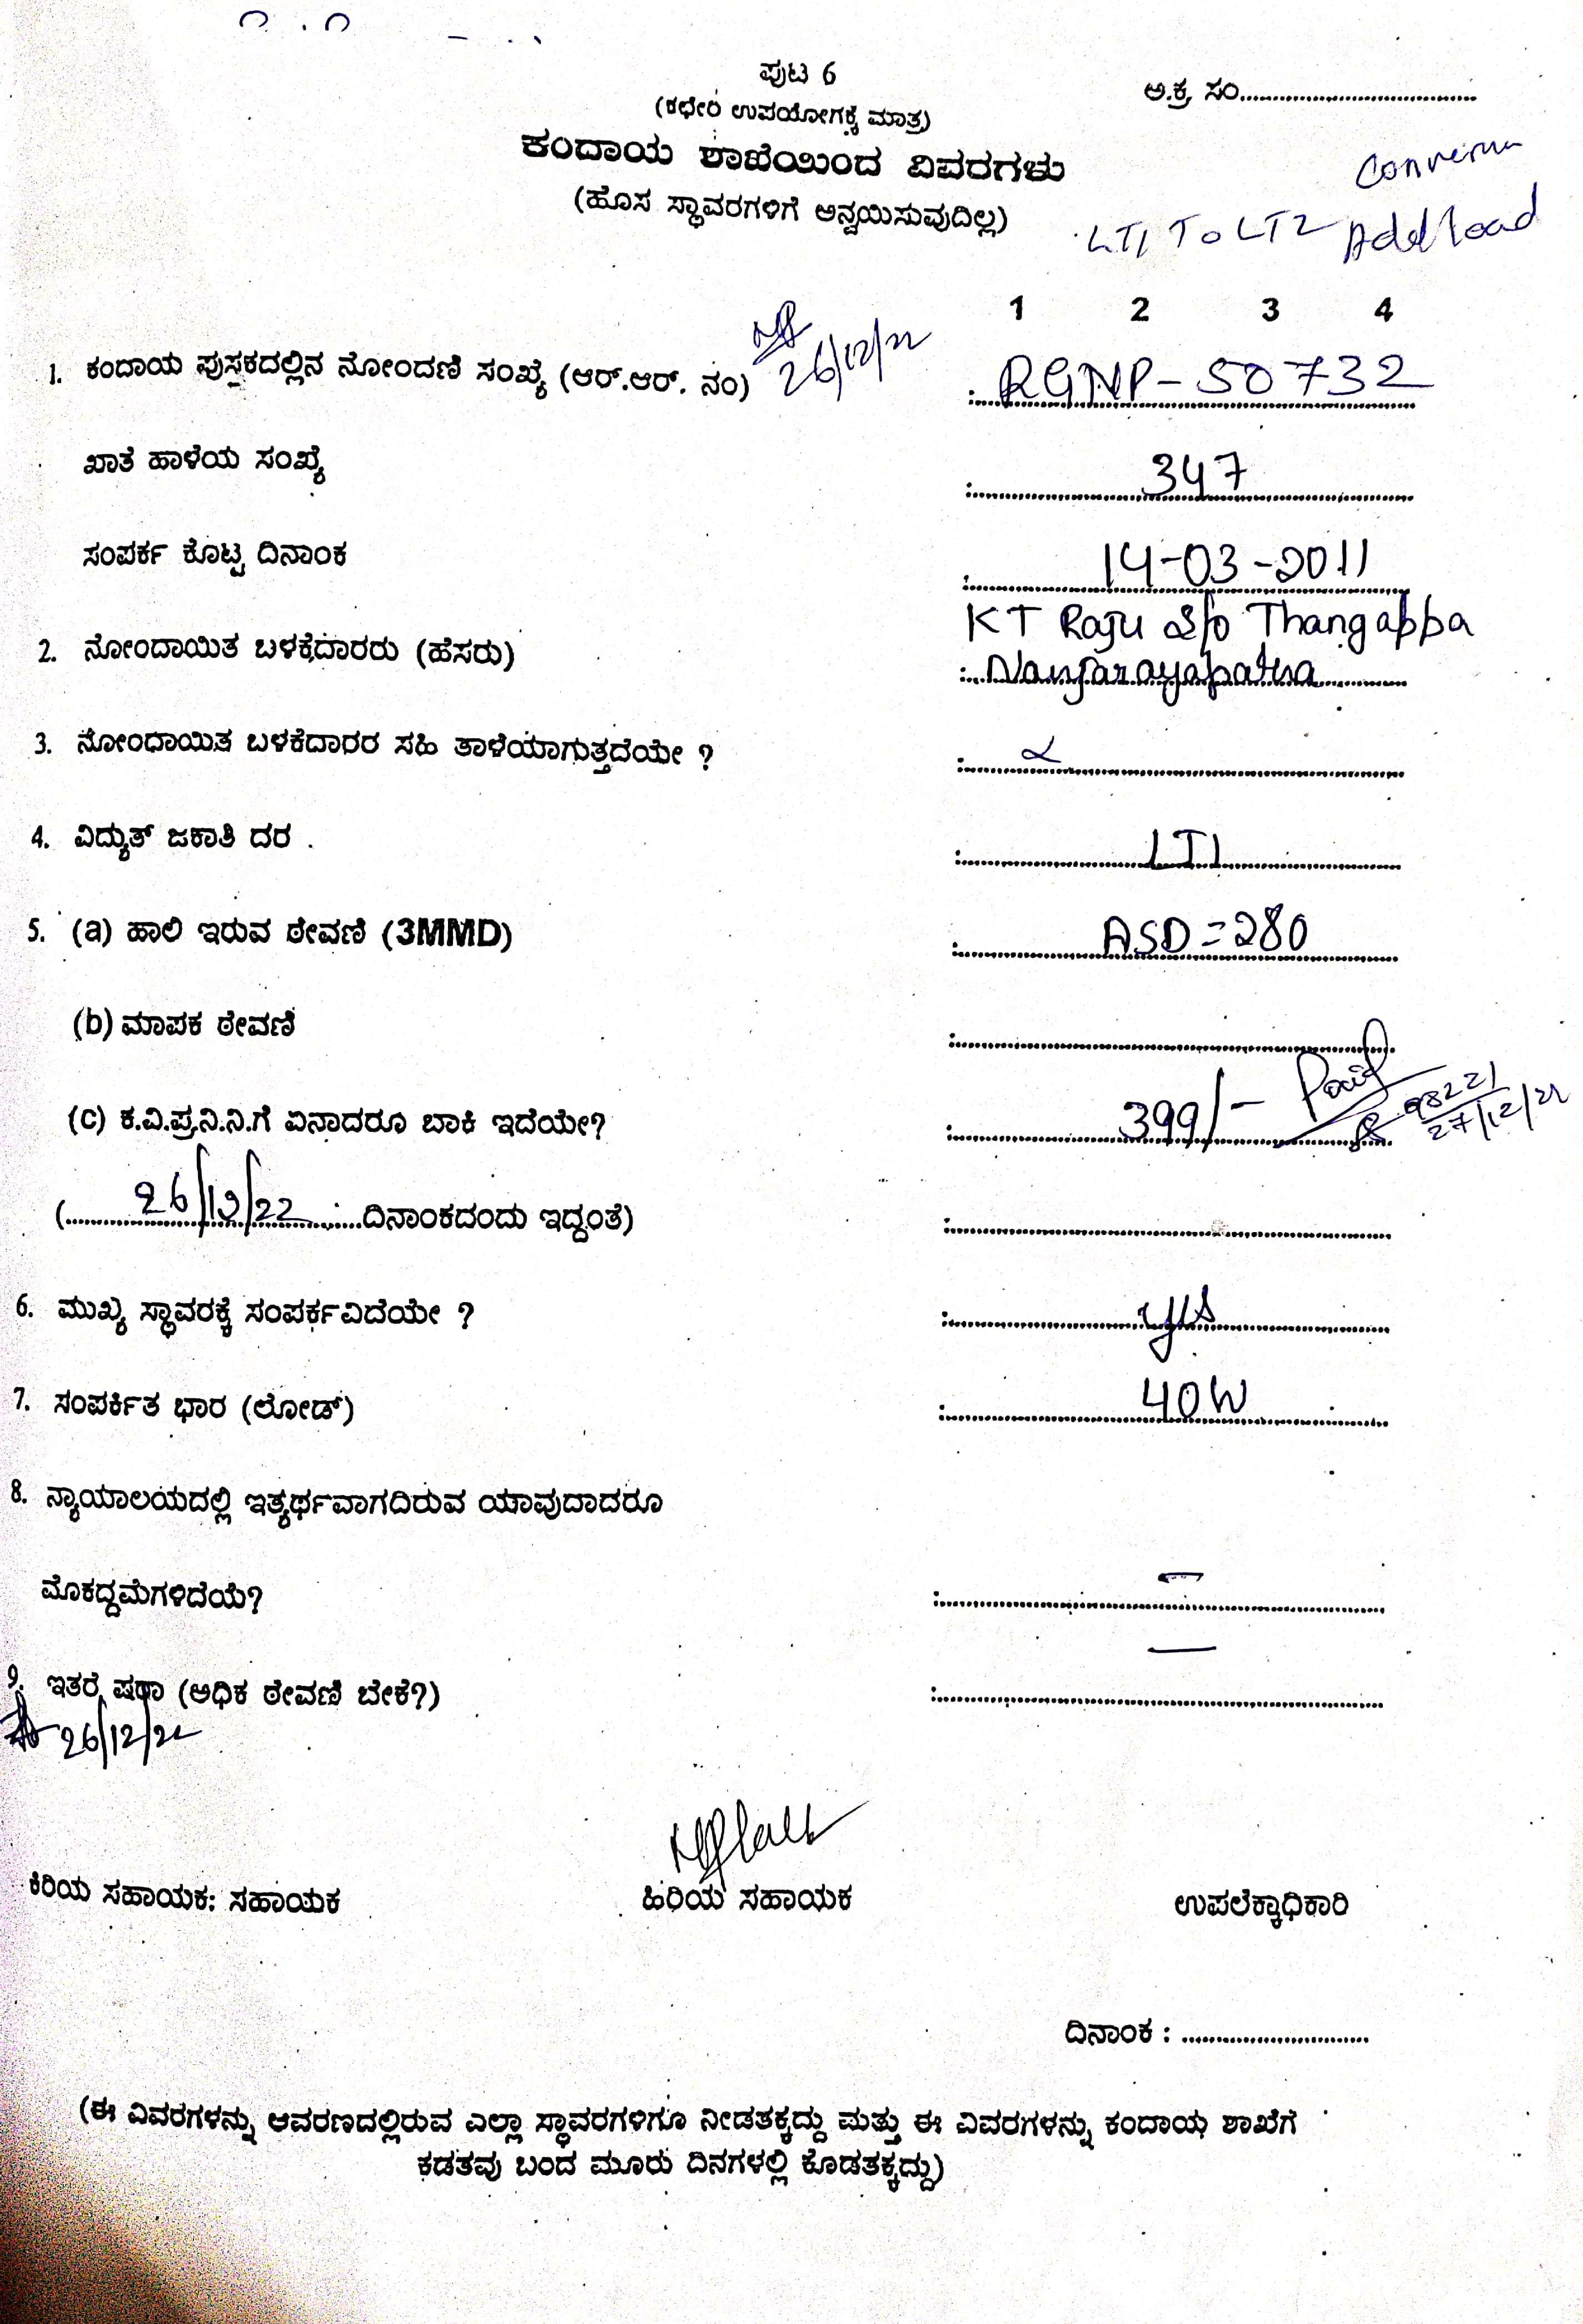 ಪುಟ 6
ಅ.ಕ್ರ. ಸಂ....................................
(ಕಛೇರಿ ಉಪಯೋಗಕ್ಕೆ ಮಾತ್ರ)
ಕಂದಾಯ ಶಾಖೆಯಿಂದ ವಿವರಗಳು
(ಹೊಸ ಸ್ಥಾವರಗಳಿಗೆ ಅನ್ವಯಿಸುವುದಿಲ್ಲ)
LT1 To LT2 Addl load
1 2 3 4
1. ಕಂದಾಯ ಪುಸ್ತಕದಲ್ಲಿನ ನೋಂದಣಿ ಸಂಖ್ಯೆ (ಆರ್.ಆರ್. ನಂ) 26/12/22 : RGNP-50732
ಖಾತೆ ಹಾಳೆಯ ಸಂಖ್ಯೆ : 347
ಸಂಪರ್ಕ ಕೊಟ್ಟ ದಿನಾಂಕ : 14-03-2011
KT Raju S/o Thangappa
2. ನೋಂದಾಯಿತ ಬಳಕೆದಾರರು (ಹೆಸರು) : Nanjarayapatna
3. ನೋಂದಾಯಿತ ಬಳಕೆದಾರರ ಸಹಿ ತಾಳೆಯಾಗುತ್ತದೆಯೇ ? :
4. ವಿದ್ಯುತ್ ಜಕಾತಿ ದರ . : LT1
5. (a) ಹಾಲಿ ಇರುವ ಠೇವಣಿ (3MMD) : ASD = 280
(b) ಮಾಪಕ ಠೇವಣಿ :
(c) ಕ.ವಿ.ಪ್ರ.ನಿ.ನಿ.ಗೆ ಏನಾದರೂ ಬಾಕಿ ಇದೆಯೇ? : 399/- Paid 98221
27/12/22
(26/12/22 ದಿನಾಂಕದಂದು ಇದ್ದಂತೆ) :
6. ಮುಖ್ಯ ಸ್ಥಾವರಕ್ಕೆ ಸಂಪರ್ಕವಿದೆಯೇ ? : yes
7. ಸಂಪರ್ಕಿತ ಭಾರ (ಲೋಡ್) : 40W
8. ನ್ಯಾಯಾಲಯದಲ್ಲಿ ಇತ್ಯರ್ಥವಾಗದಿರುವ ಯಾವುದಾದರೂ
ಮೊಕದ್ದಮೆಗಳಿದೆಯೆ? : —
9. ಇತರೆ ಷರಾ (ಅಧಿಕ ಠೇವಣಿ ಬೇಕೆ?) : —
26/12/22
ಕಿರಿಯ ಸಹಾಯಕ: ಸಹಾಯಕ ಹಿರಿಯ ಸಹಾಯಕ ಉಪಲೆಕ್ಕಾಧಿಕಾರಿ
ದಿನಾಂಕ : ............................
(ಈ ವಿವರಗಳನ್ನು ಆವರಣದಲ್ಲಿರುವ ಎಲ್ಲಾ ಸ್ಥಾವರಗಳಿಗೂ ನೀಡತಕ್ಕದ್ದು ಮತ್ತು ಈ ವಿವರಗಳನ್ನು ಕಂದಾಯ ಶಾಖೆಗೆ
ಕಡತವು ಬಂದ ಮೂರು ದಿನಗಳಲ್ಲಿ ಕೊಡತಕ್ಕದ್ದು)